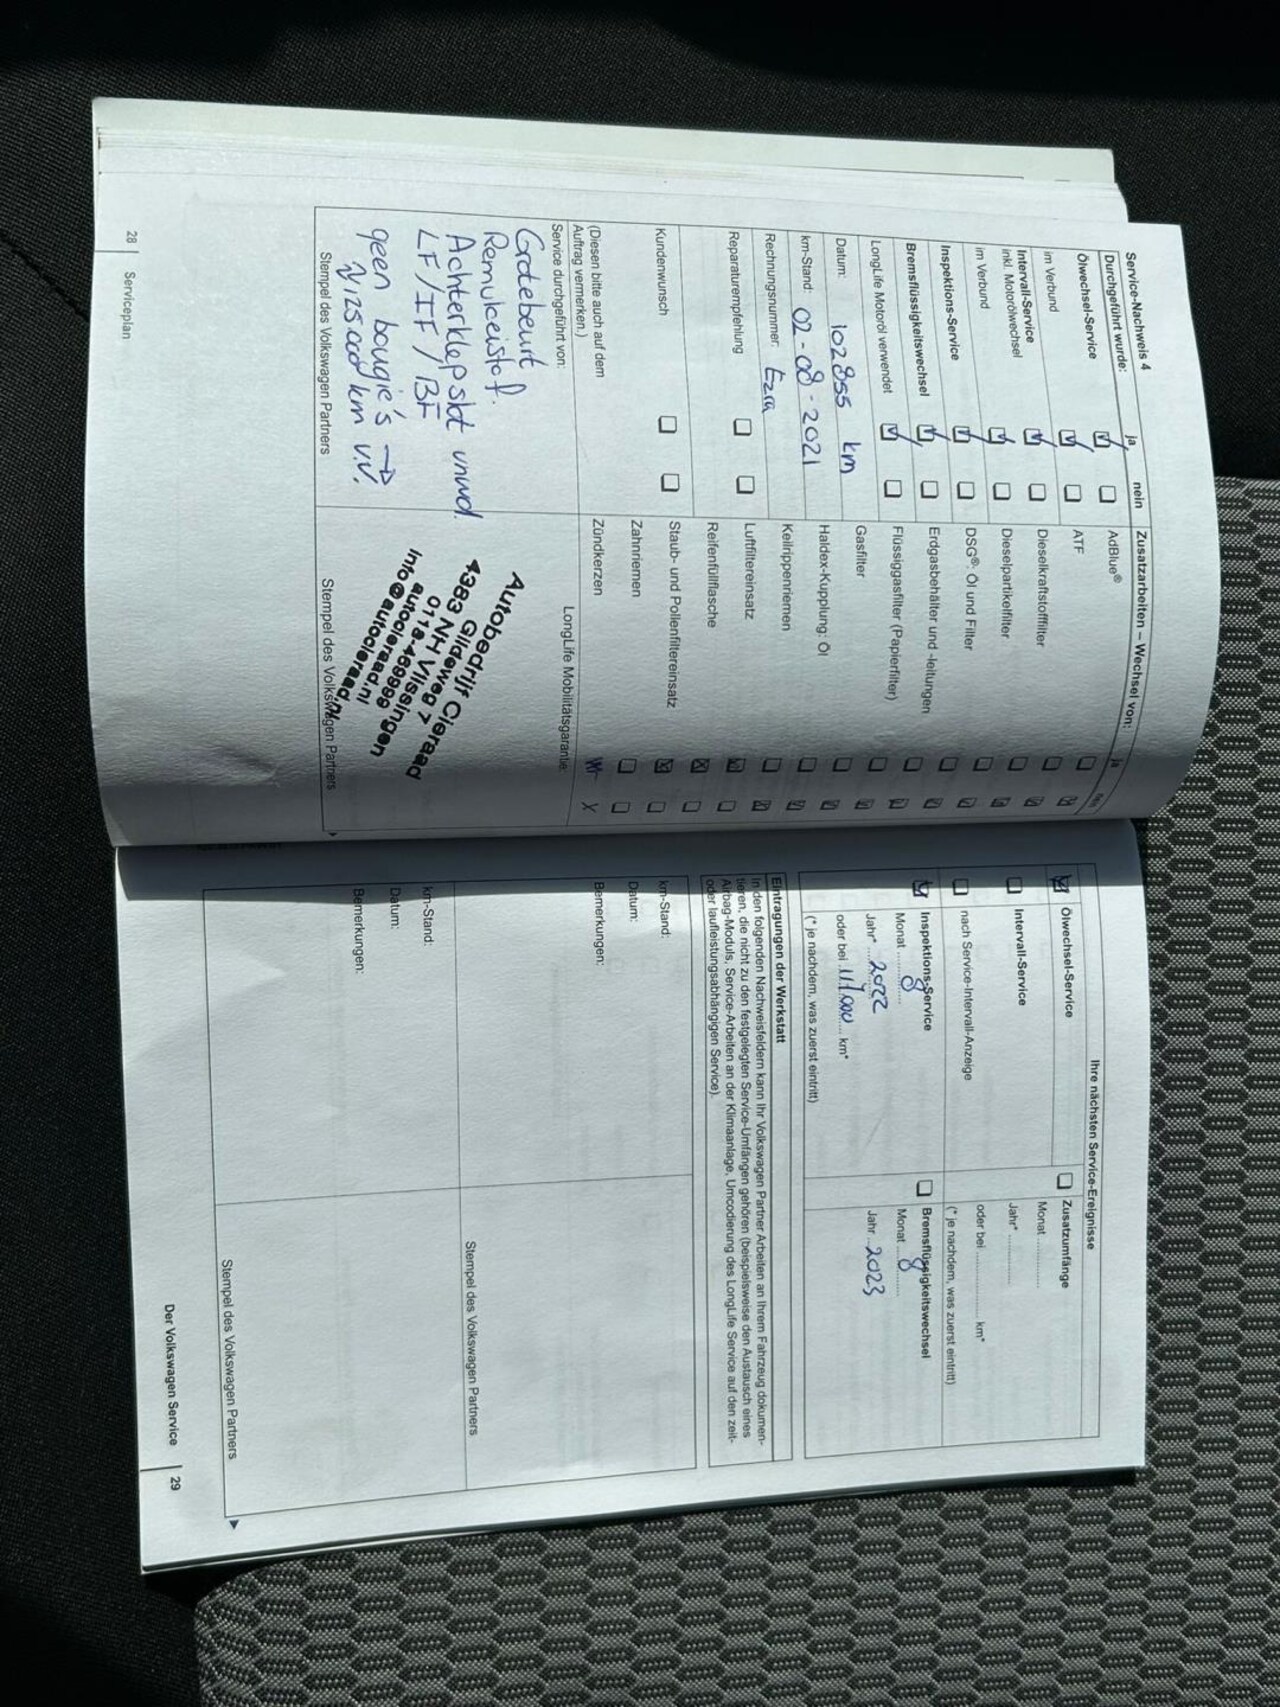 Service-Nachweis 4
Durchgeführt wurde: ja nein
Ölwechsel-Service
im Verbund
Intervall-Service
inkl. Motorölwechsel
im Verbund
Inspektions-Service
Bremsflüssigkeitswechsel
LongLife Motoröl verwendet
Datum: 102855 km
km-Stand: 02-08-2021
Rechnungsnummer: Ezra
Reparaturempfehlung
Kundenwunsch
(Diesen bitte auch auf dem
Auftrag vermerken.)
Service durchgeführt von:
Grotebeurt
Remvloeistof.
Achterklepslot vnwd.
LF/IF/BF
geen bougie's →
125000 km v.v.
Stempel des Volkswagen Partners
Zusatzarbeiten – Wechsel von: ja
AdBlue®
ATF
Dieselkraftstofffilter
Dieselpartikelfilter
DSG®: Öl und Filter
Erdgasbehälter und -leitungen
Flüssiggasfilter (Papierfilter)
Gasfilter
Haldex-Kupplung: Öl
Keilrippenriemen
Luftfiltereinsatz
Reifenfüllflasche
Staub- und Pollenfiltereinsatz
Zahnriemen
Zündkerzen X
LongLife Mobilitätsgarantie:
Autobedrijf Cieraad
Gildeweg 7
4383 NH Vlissingen
0118-469999
autocieraad.nl
Info@autocieraad.nl
Stempel des Volkswagen Partners
28 Serviceplan
Ihre nächsten Service-Ereignisse
Ölwechsel-Service
Intervall-Service
nach Service-Intervall-Anzeige
Zusatzumfänge
Monat ............
Jahr* ............
oder bei ............ km*
(* je nachdem, was zuerst eintritt)
Inspektions-Service
Monat 8
Jahr* 2022
oder bei 117.000 km*
(* je nachdem, was zuerst eintritt)
Bremsflüssigkeitswechsel
Monat 8
Jahr 2023
Eintragungen der Werkstatt
In den folgenden Nachweisfeldern kann Ihr Volkswagen Partner Arbeiten an Ihrem Fahrzeug dokumen-
tieren, die nicht zu den festgelegten Service-Umfängen gehören (beispielsweise den Austausch eines
Airbag-Moduls, Service-Arbeiten an der Klimaanlage, Umcodierung des LongLife Service auf den zeit-
oder laufleistungsabhängigen Service).
km-Stand:
Datum:
Bemerkungen:
Stempel des Volkswagen Partners
km-Stand:
Datum:
Bemerkungen:
Stempel des Volkswagen Partners
Der Volkswagen Service 29